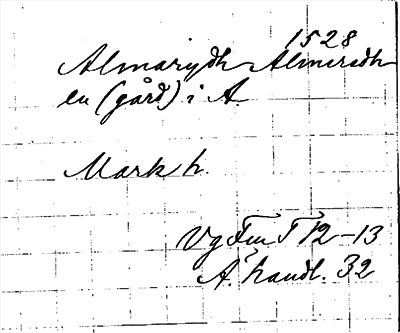 1528
Almarydh Almeredh
en (gård) i A
Mark h.
Vg Fm I 12-13
Å. handl. 32